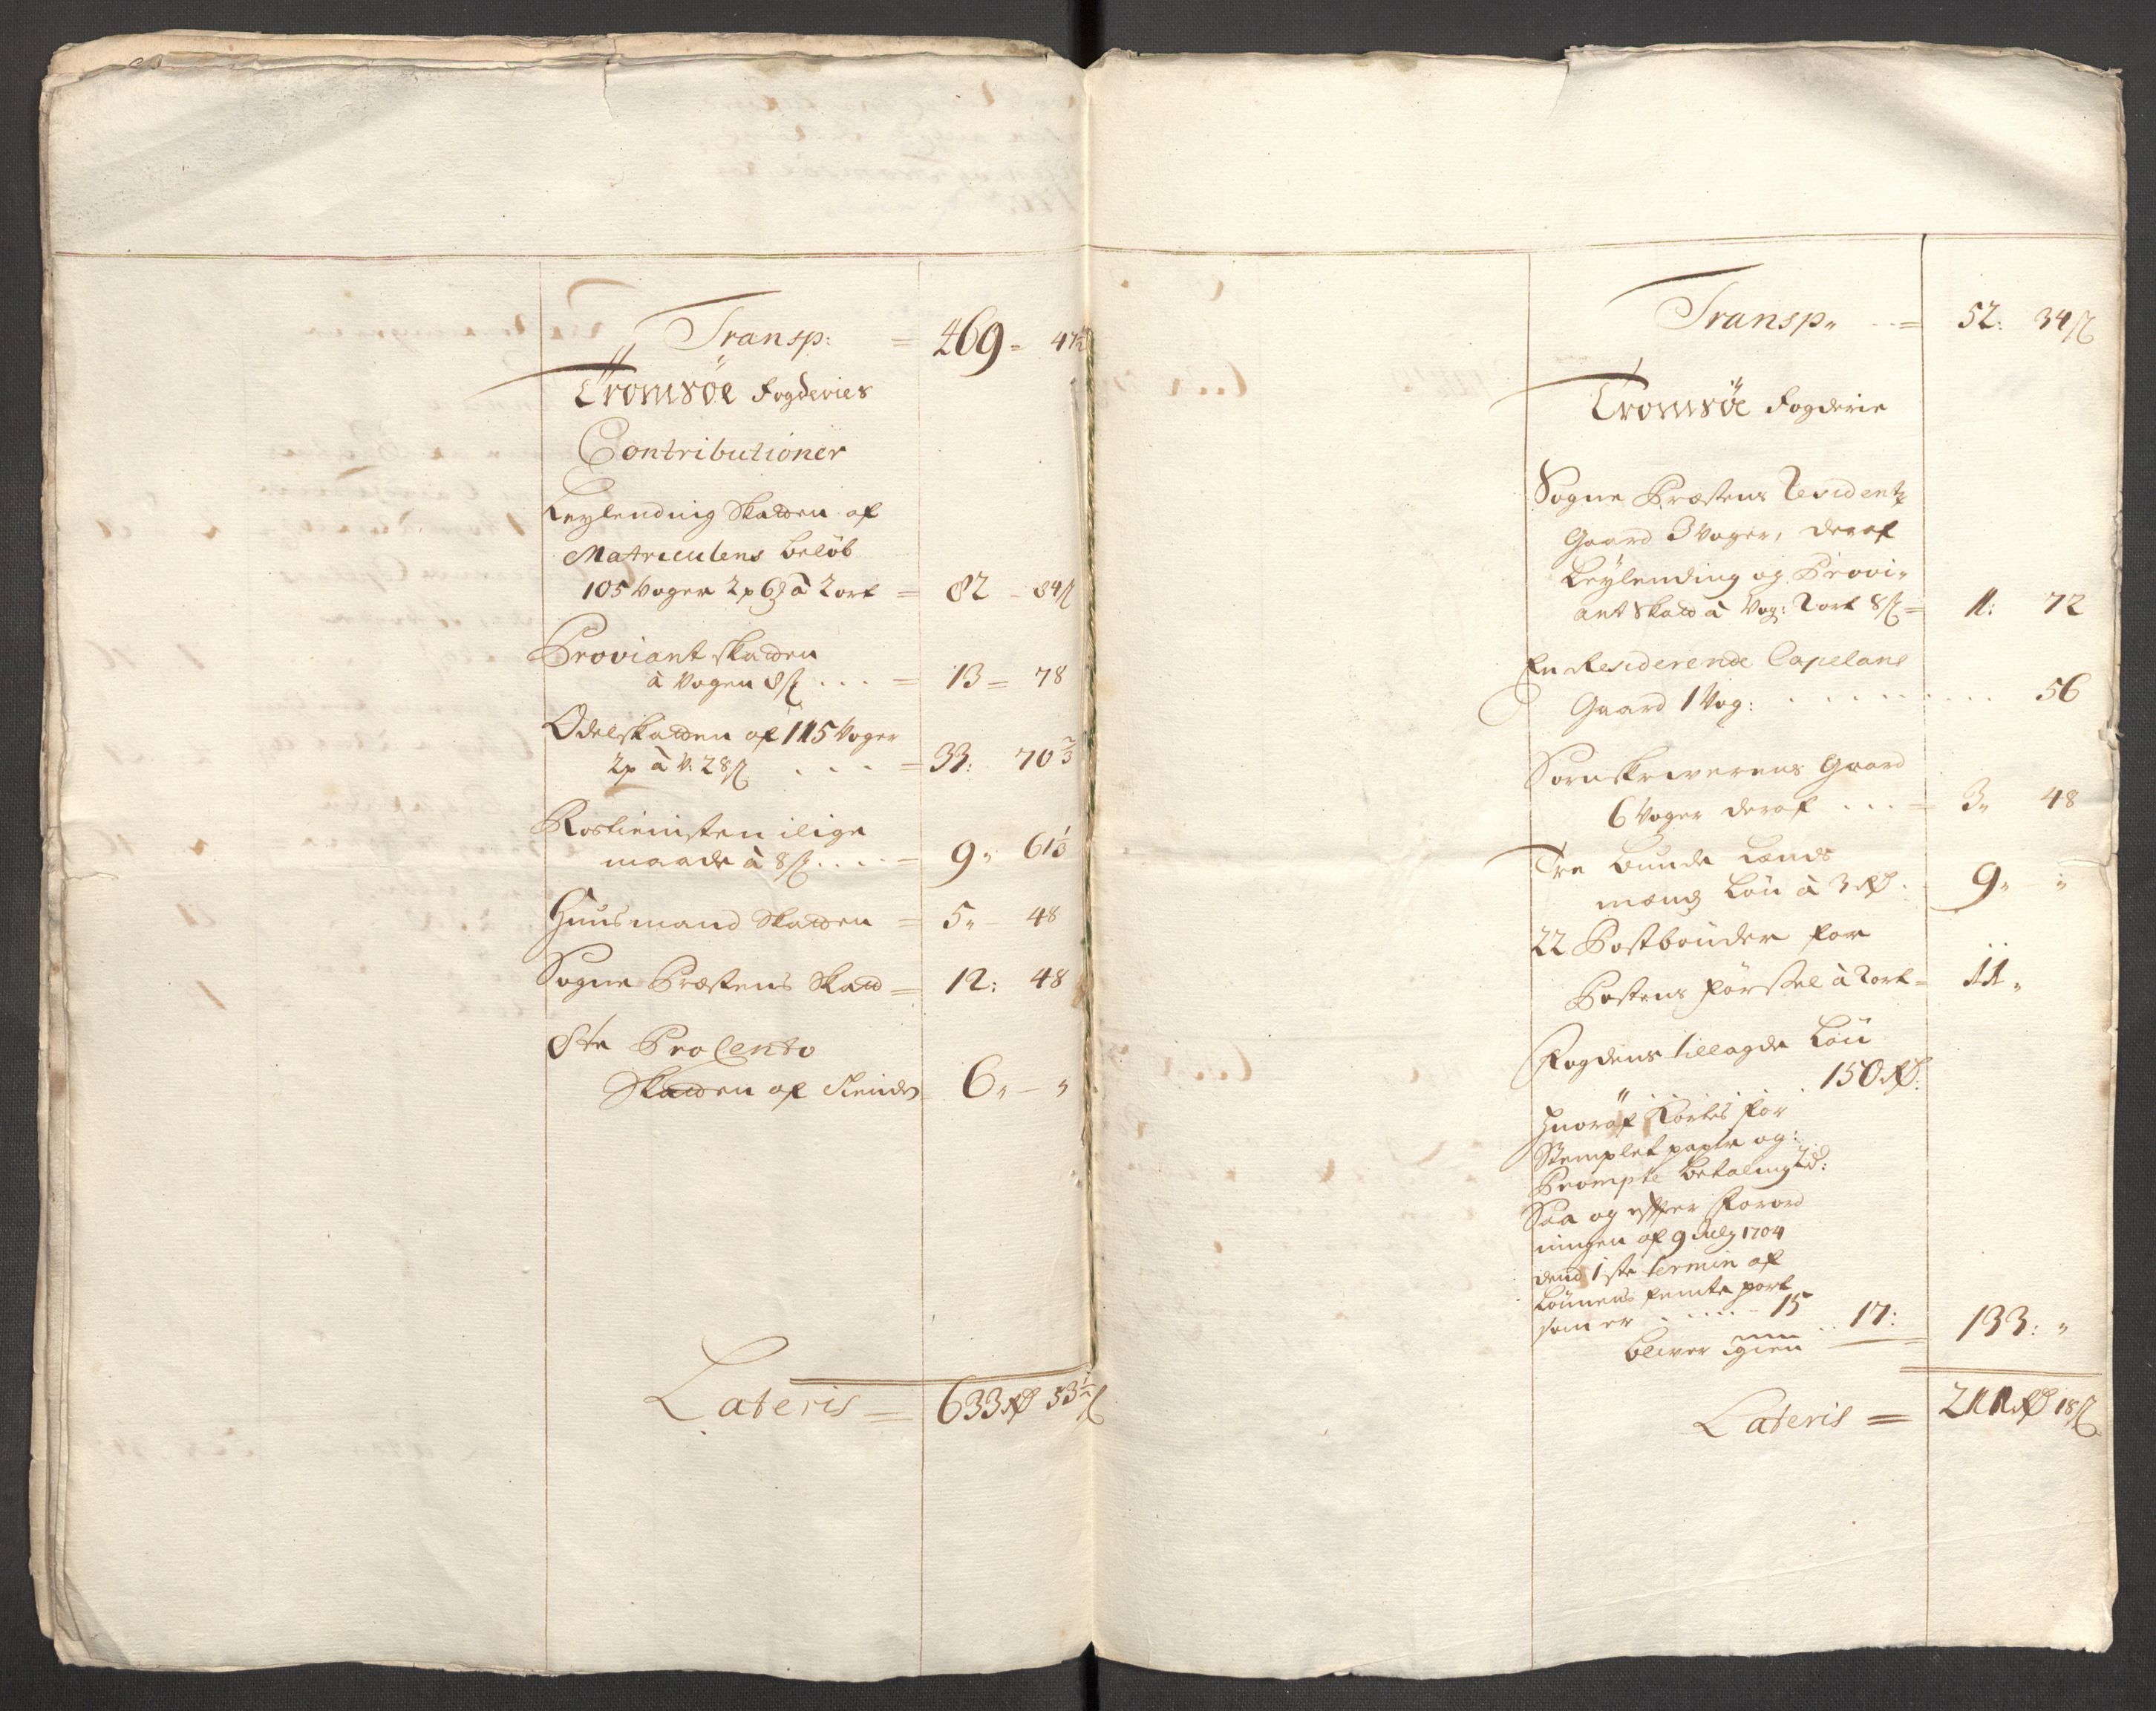 Transp: = 469 = 47½
Tromsøe Fogderies
Contributioner
Leylending Skatten af
Matriculens beløb
105 Voger 2 p 6 à 2 ort = 82 - 84 ß
Proviant skatten
à Vogen 8 ß . . . = 13 = 78
Odelskatten af 115 Voger
2p à V: 28 ß . . . = 33: 70⅔
Rostienisten ilige
maade à 8 ß . . . . = 9" 61⅓
Huusmand Skatten = 5" - 48
Sogne Præstens Skatt = 12: 48
8te Pro Cento
Skatten af Rendes 6" - "
Lateris = 633 Rd 53½ ß
Transp" - - = 52: 34 ß
Tromsøe Fogderie
Sogne Præstens Residentz
Gaard 3 Voger, deraf
Leylending og Provi-
ant Skatt à Vog: 2 ort 8 ß = 1: 72
En Residerende Capelans
Gaard 1 Vog: . . . . . . . . 56
Sornskriverens Gaard
6 Voger deraf . . . = 3" 48
Tre bunde Lænds
mænds Løn à 3 Rd . 9" "
22 Postbønder for
Postens førsel à 2 ort = 11"
Fogdens tillagde Løn
150 Rd:
Hvoraf Kortes for
Stemplet papir og:
Prompte betaling 2 Rd:
Saa og effter Forord
ningen af 9 July 1704
dend 1ste termin af
Lønnens femte part
som er . . . . . - 15 . . 17:
bliver igien — = 133: "
Lateris = 211 Rd 18 ß